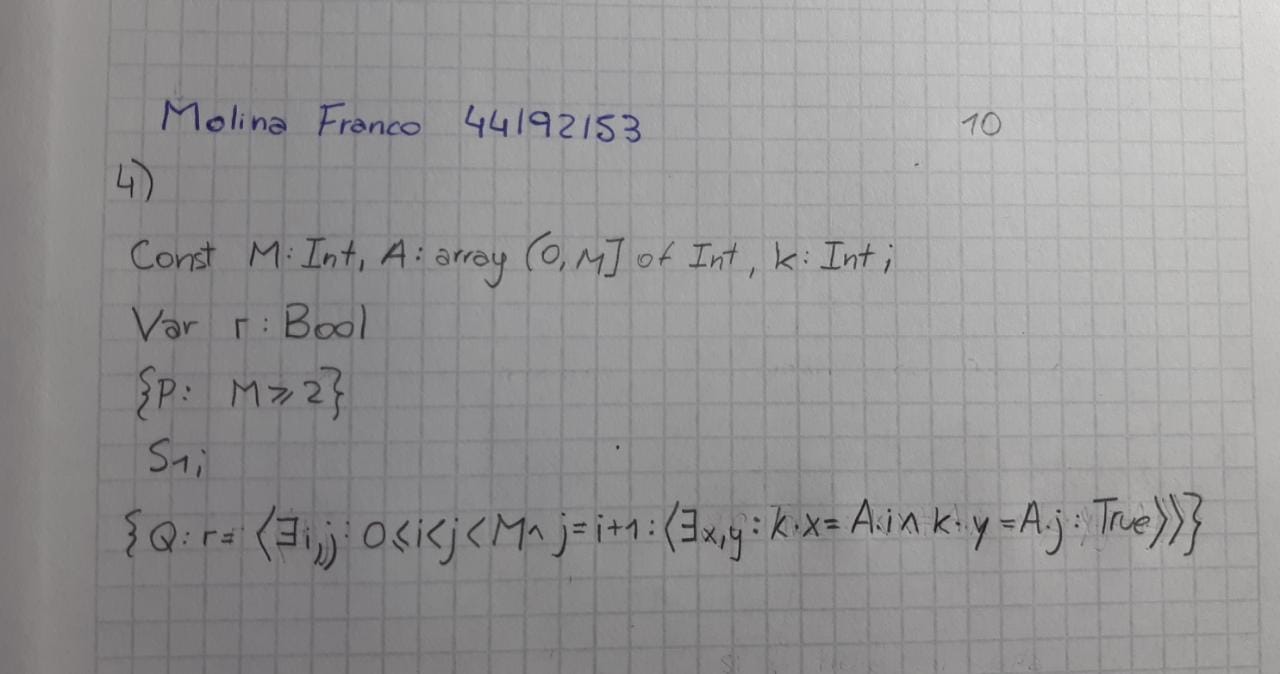 Molina Franco 44192153 10
4)
Const M: Int, A: array (0, M] of Int, k: Int;
Var r: Bool
{P: M ⩾ 2}
S1;
{Q: r= ⟨∃i,j: 0⩽i<j<M ∧ j=i+1: ⟨∃x,y: k.x = A.i ∧ k.y = A.j: True⟩⟩}